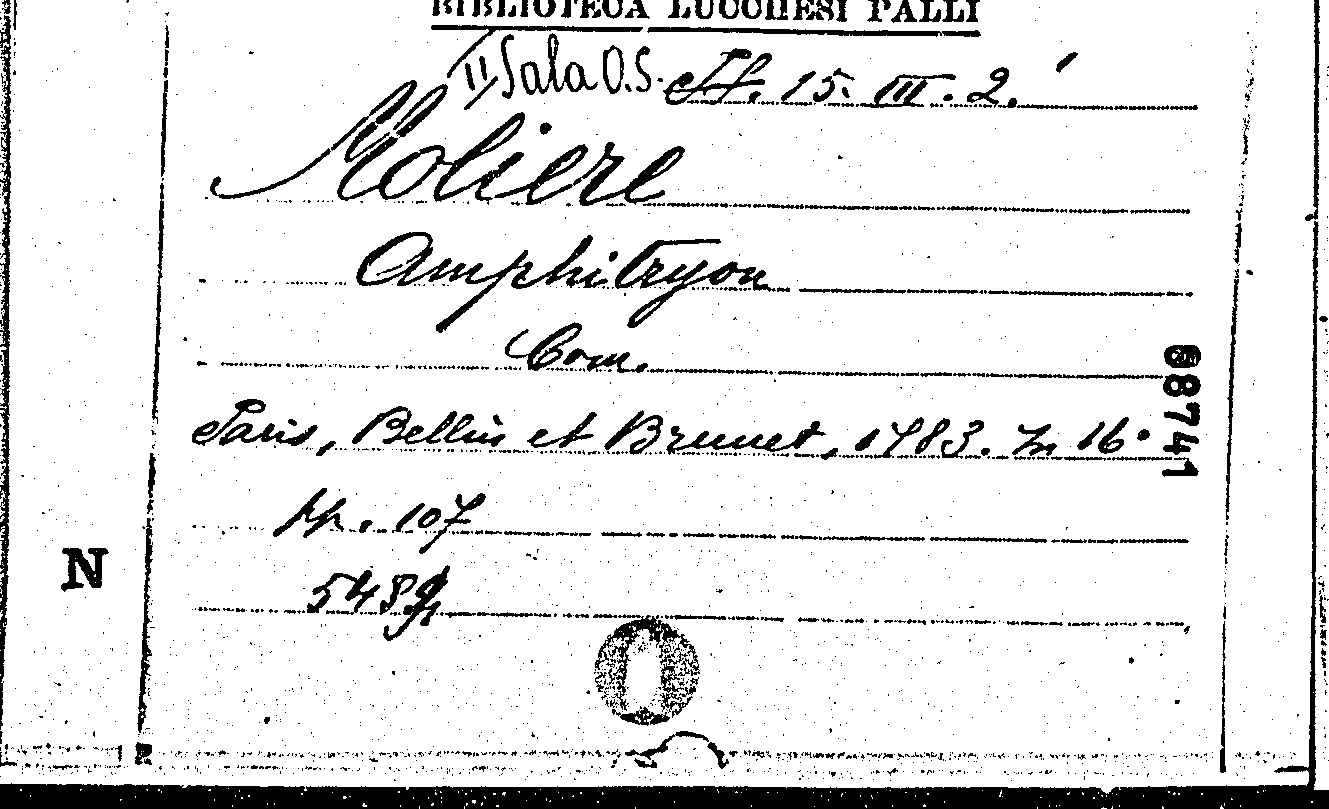 BIBLIOTECA LUCCHESI PALLI
II Sala O.S. 15. III. 2.
Moliere
Amphitryon
Com.
Paris, Bellin et Brunet, 1783. In 16°
pp. 107
68741
N